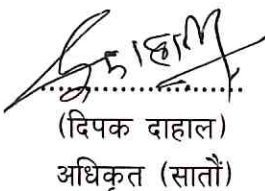 (दिपक दाहाल)
अधिकृत (सातौं)